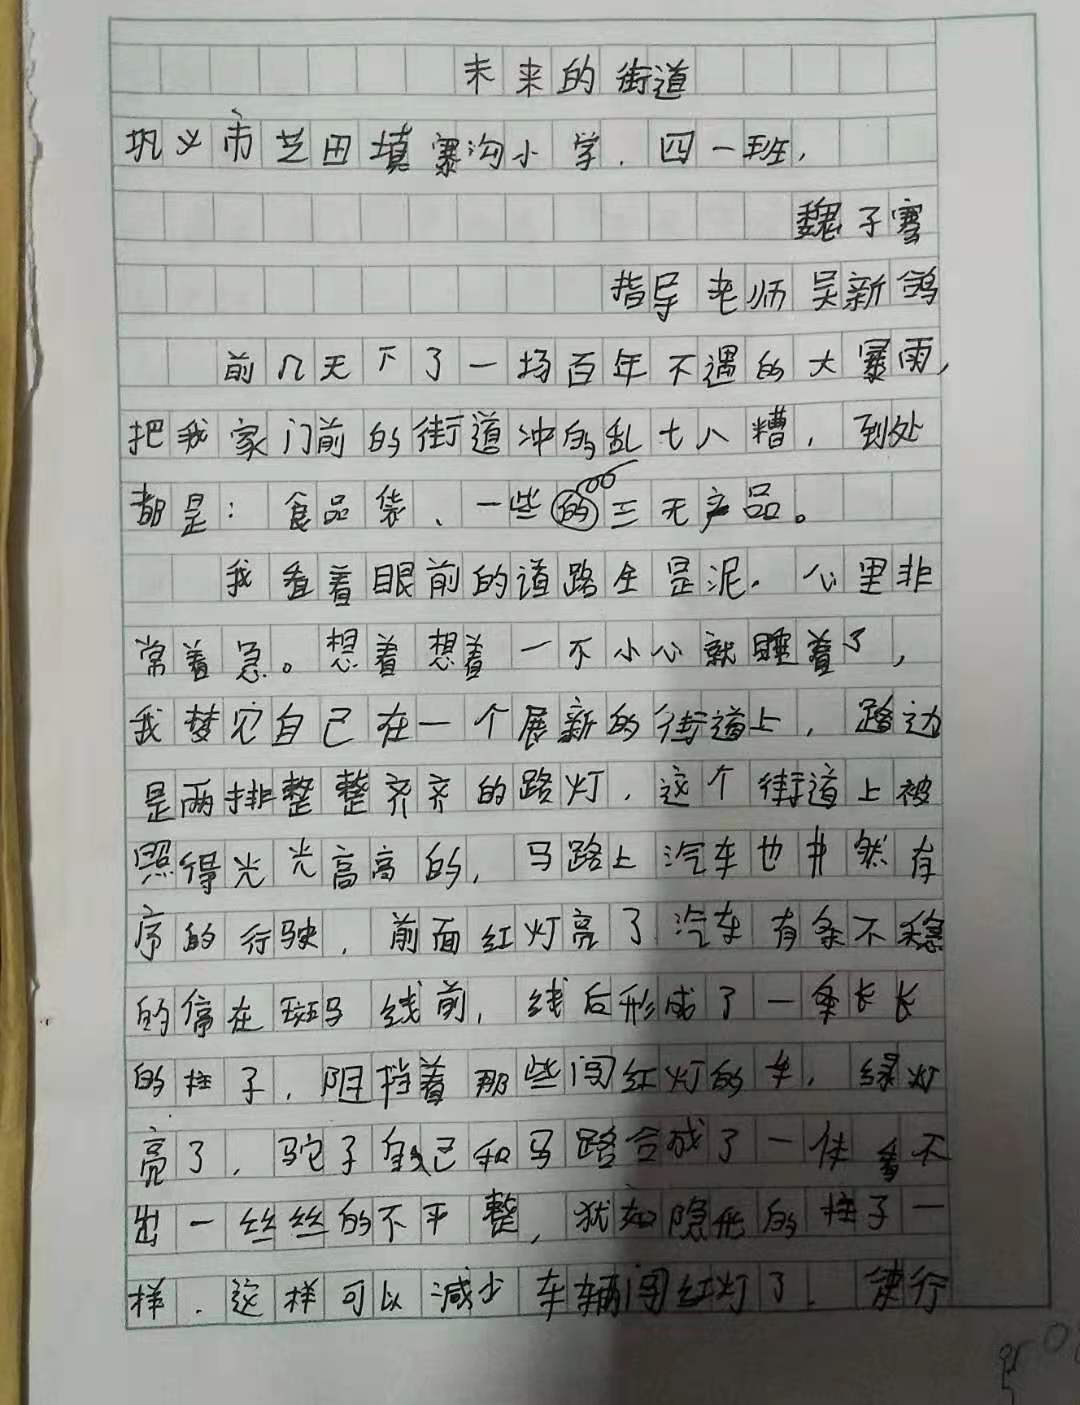 未来的街道
巩义市芝田填寨沟小学．四一班，
魏子骞
指导老师吴新鸽
前几天下了一场百年不遇的大暴雨，
把我家门前的街道冲的乱七八糟，到处
都是：食品袋、一些三无产品。
我看着眼前的道路全是泥．心里非
常着急。想着想着一不小心就睡着了，
我梦见自己在一个展新的街道上，路边
是两排整整齐齐的路灯．这个街道上被
照得光光高高的，马路上汽车也井然存
序的行驶，前面红灯亮了汽车有条不稳
的停在斑马线前，线后形成了一条长长
的柱子．阻挡着那些闯红灯的车．绿灯
亮了，柱子自己和马路合成了一体看不
出一丝丝的不平整，犹如隐形的柱子一
样．这样可以减少车辆闯红灯了．使行